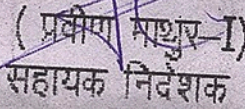 ( प्रवीण माथुर-I)
सहायक निर्देशक